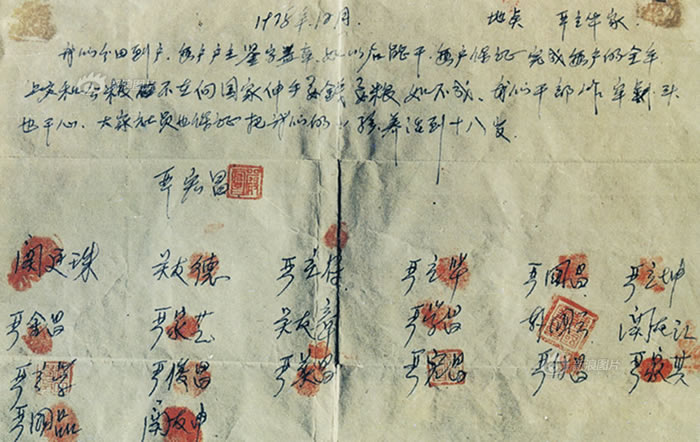 1978年12月. 地点 严立华家.
我们分田到户, 每户户主签字盖章, 如以后能干, 每户保证完成每户的全年
上交和公粮. 不在向国家伸手要錢要粮. 如不成, 我们干部作牢刹头
也干心, 大家社员也保证把我们的小孩养活到十八岁.
严宏昌
关廷珠 关友德 严立符 严立华 严国昌 严立坤
严金昌 严家芝 关友章 严学昌 韩国云 关友江
严立学 严俊昌 严美昌 严宏昌 严付昌 严家其
严国品 关友申
新浪图片